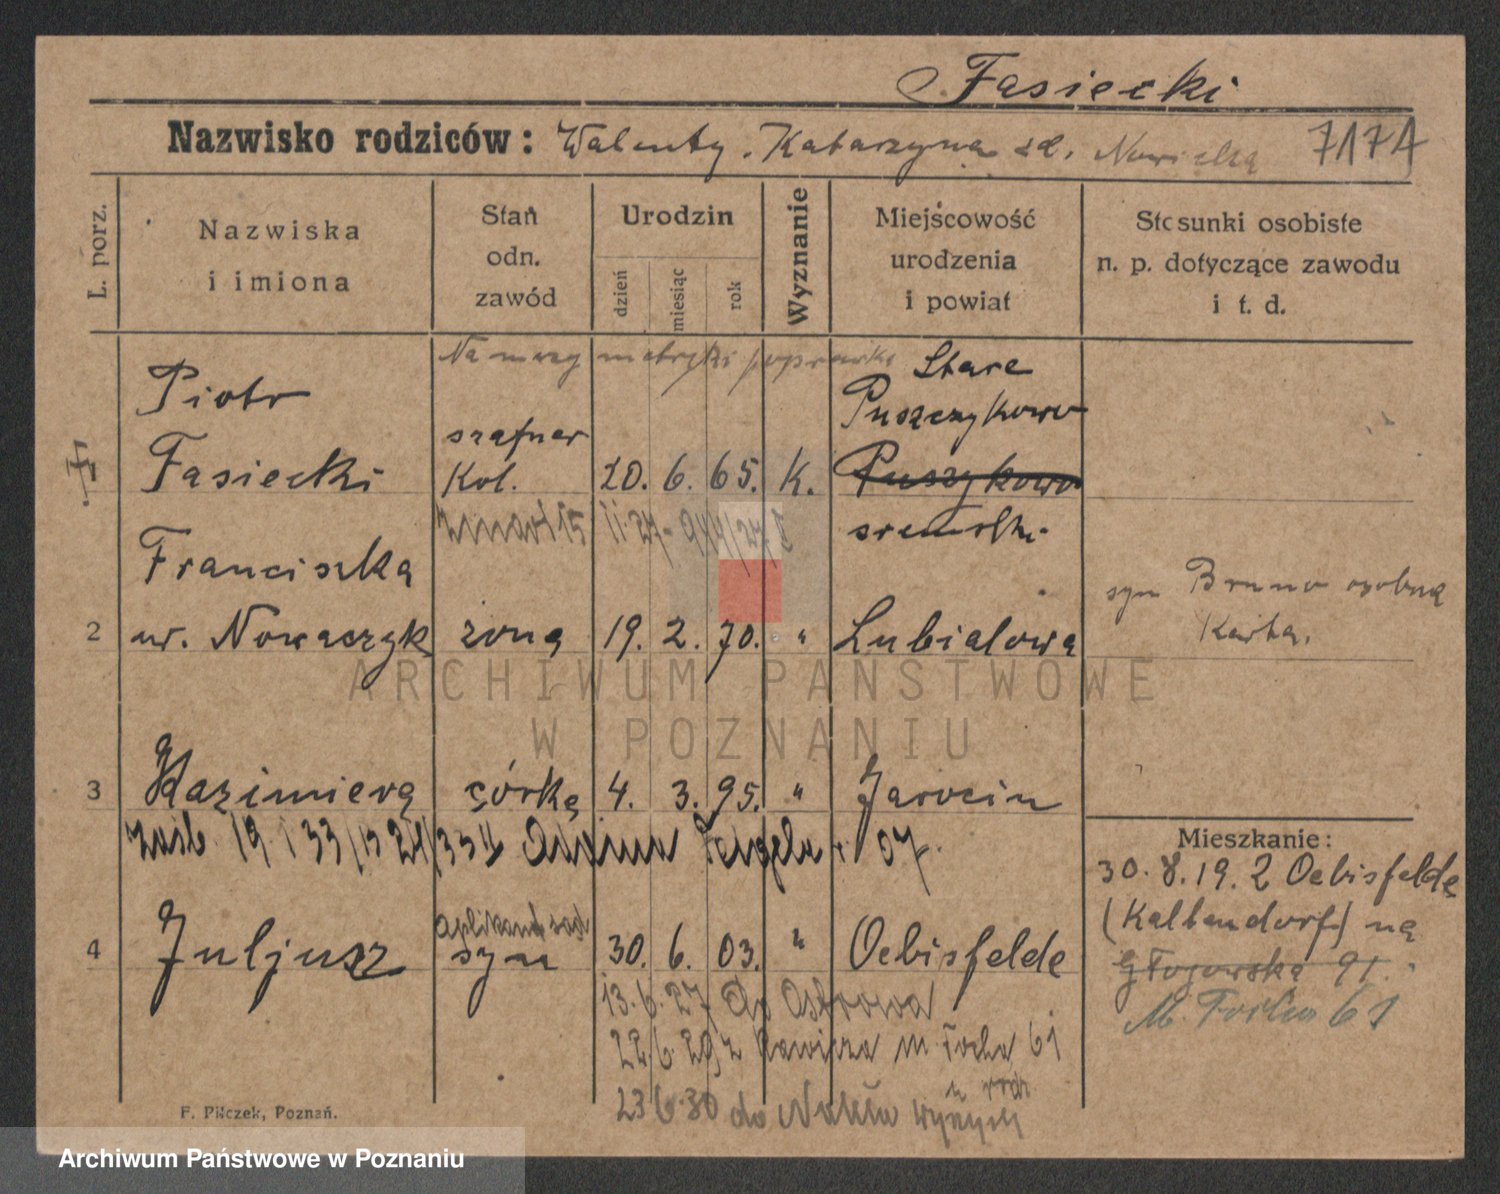 Fasiecki
Nazwisko rodziców: Walenty. Katarzyna zd. Nowicka 7174
L. porz.
Nazwiska
i imiona
Stan
odn.
zawód
Urodzin
dzień
miesiąc
rok
Wyznanie
Miejscowość
urodzenia
i powiat
Stosunki osobiste
n. p. dotyczące zawodu
i t. d.
Na mocy metryki poprawka
Piotr
Fasiecki
szafner
Kol.
20. 6. 65. K.
Stare
Puszczykowo
Puszykowo
sremski
zmarł 15 11.27 - 944/27
Franciszka
2 ur. Nowaczyk żona 19. 2. 70. " Lubiatowa
syn Bruno osobna
Karta.
3 Kazimiera córka 4. 3. 95. " Jarocin
19 33
07.
Mieszkanie:
30. 8. 19. z Oebisfelde
(Kaltendorf) na
Głogowska 91.
M. Focha 61
aplikant sąd
4 Juljusz syn 30. 6. 03. " Oebisfelde
13.6.27 do Ostrowa
22.6.29 z Rawicza M Focha 61
23.6.30 do Nakła
F. Pilczek, Poznań.
ARCHIWUM PAŃSTWOWE
W POZNANIU
Archiwum Państwowe w Poznaniu